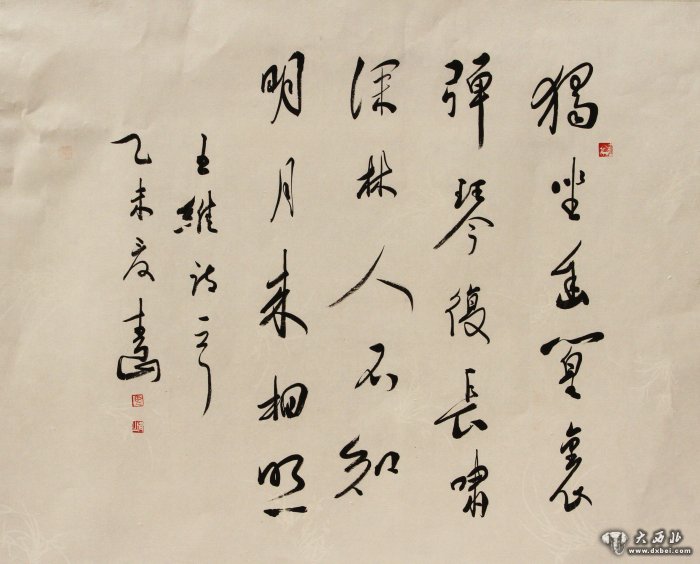 獨坐幽篁裏
彈琴復長嘯
深林人不知
明月来相照
王維诗一首
乙未夏
大西北
www.dxbei.com